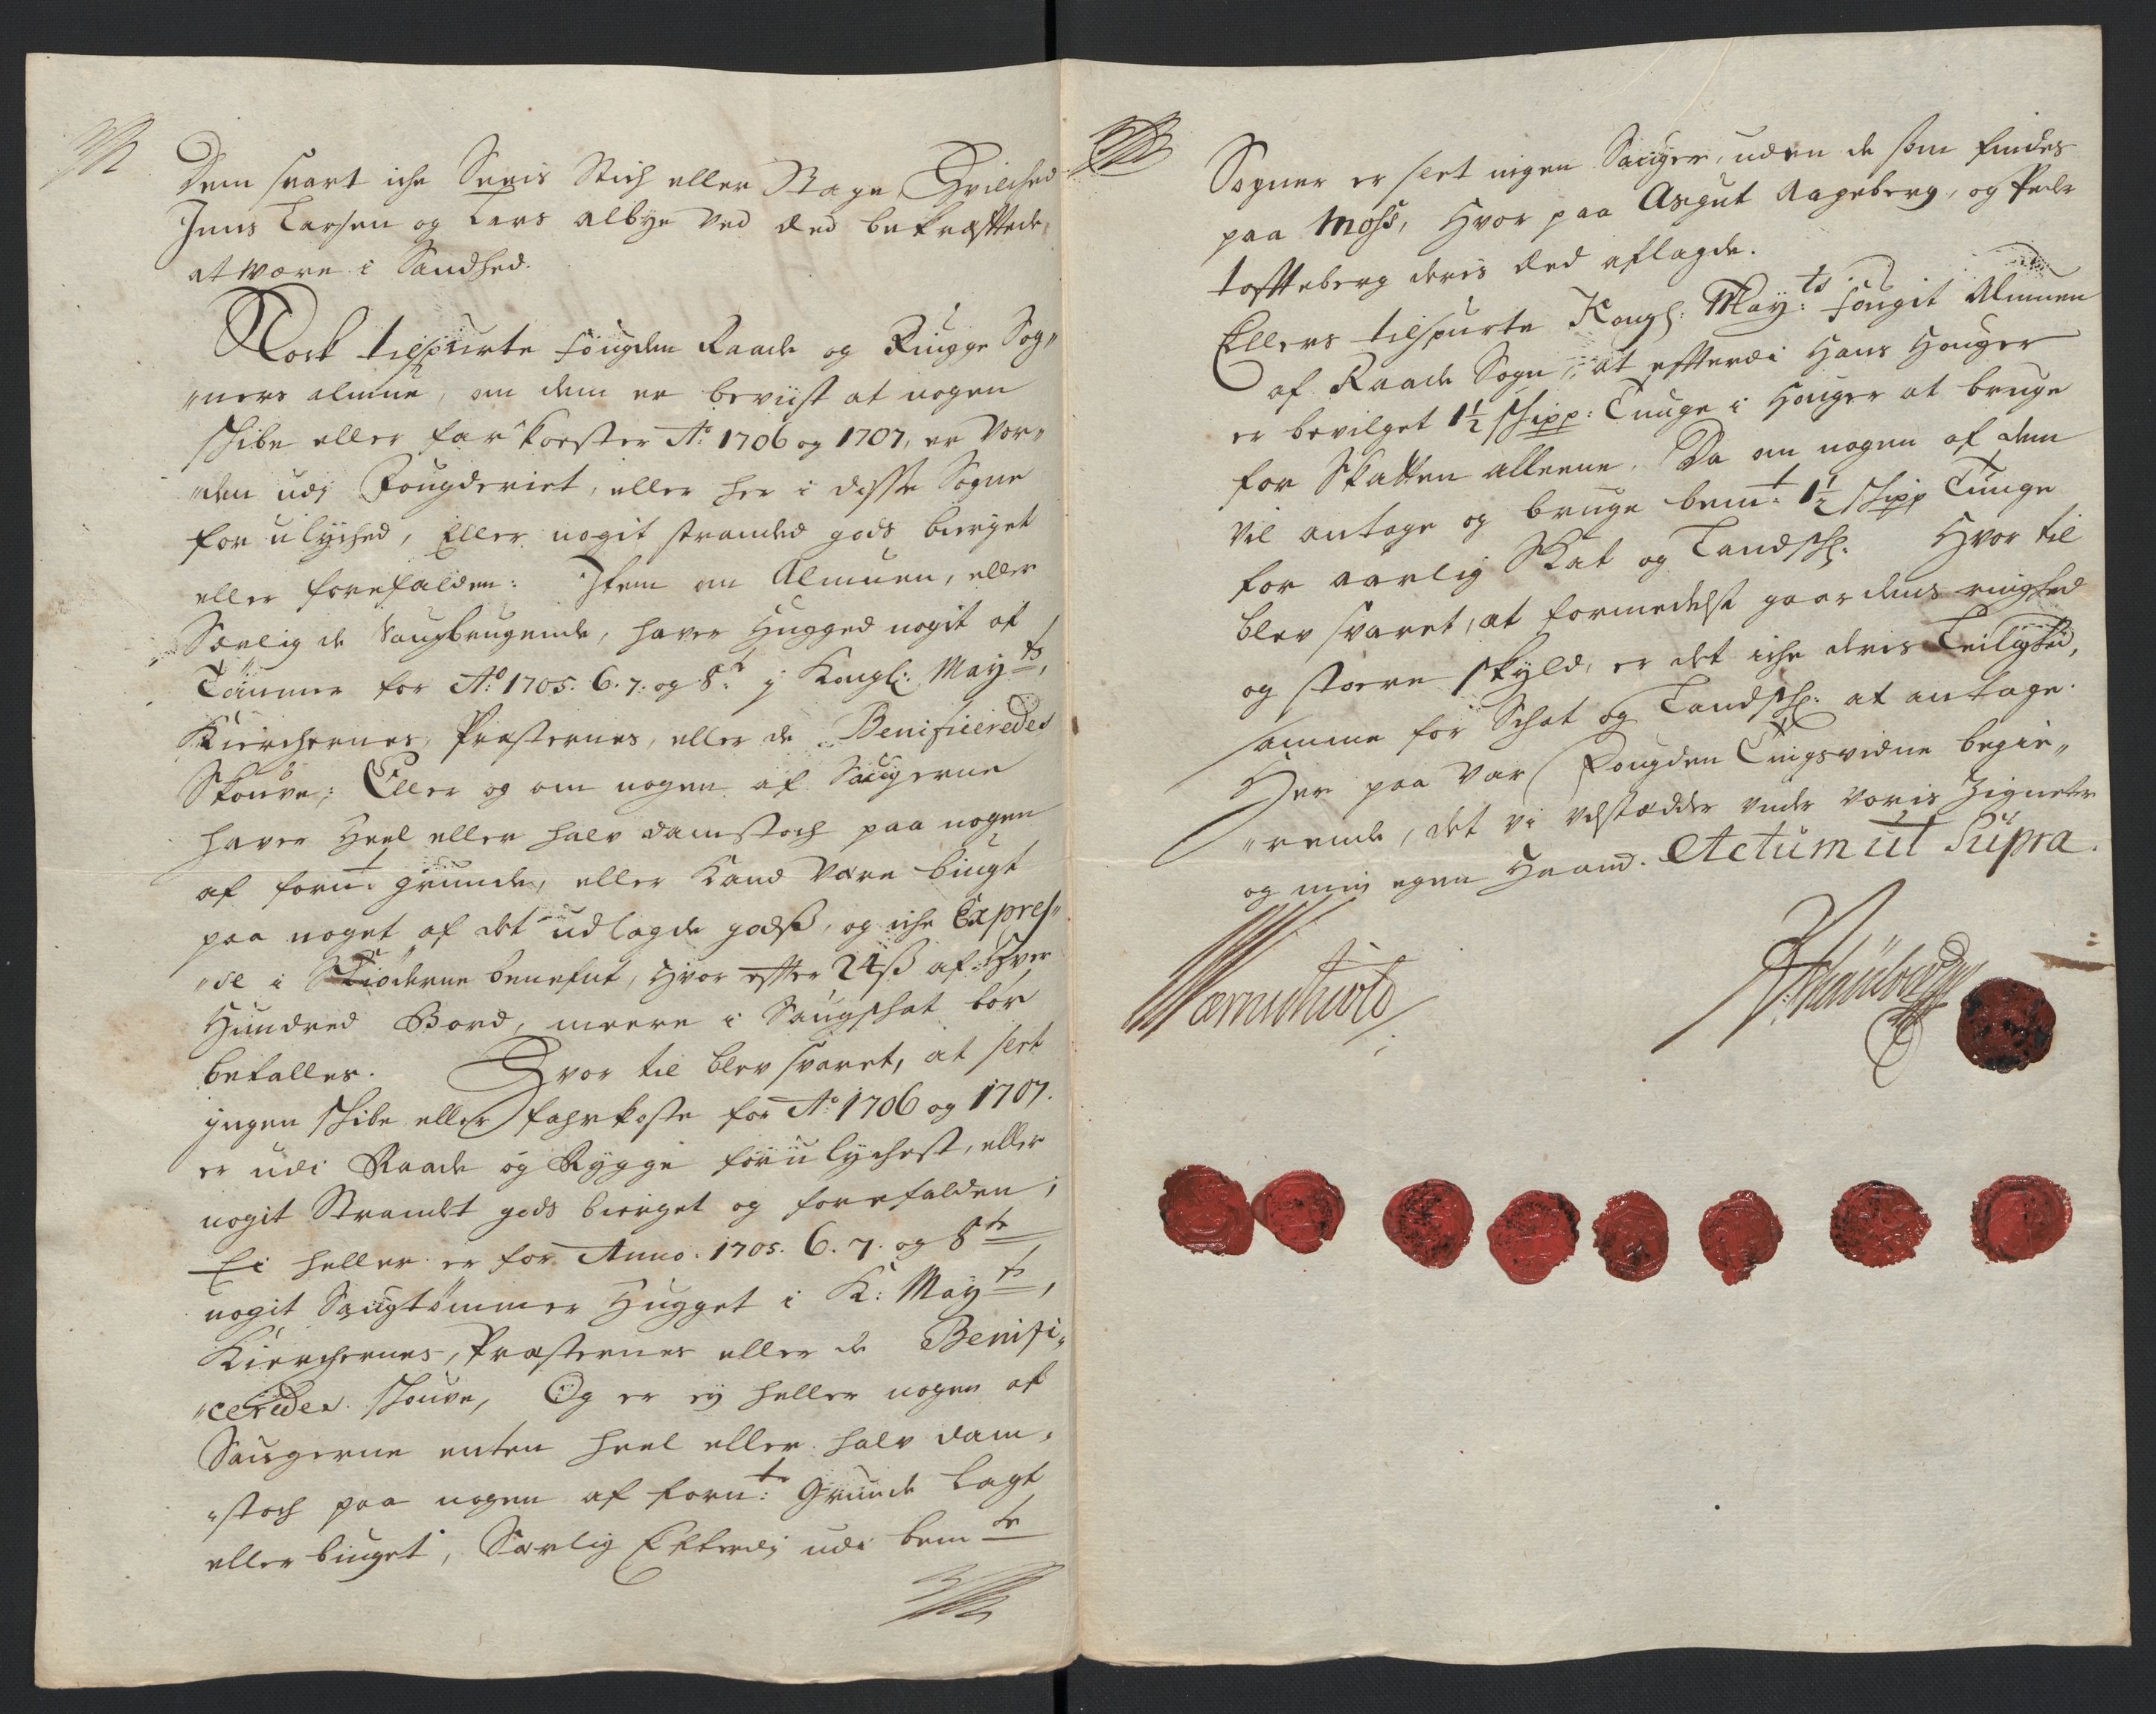 Dem svart iche Seris Stich eller Bage, Hvilched
Jens Larsen og Lars Albye ved Eed bekræfftede,
at være i Sandhed.
Nock tilspurte fougden Raade og Rùgge Sog„
„ners almue, om dem er beviist at nogen
schibe eller farkoster Ao: 1706 og 1707, er vor„
„den udj Fougderiet, eller her i disse Sogne
forulyched, Eller nogit stranded gods bierget
eller forefalden: Item om Almuen, eller
Særlig de Saugbrugende, haver Hugged nogit af
Tømmer for Ao: 1705. 6. 7. og 8de j Kongl: Mayts,
Kierchernes, Præsternes, eller de Benificeredes
Skouve; Eller og om nogen af Saugerne
haver Heel eller halv damstoch paa nogen
af fornte grunde, eller Kand være bùgt
paa noget af det udlagde godtz, og iche Expres„
„se i Skiøderne benefnt, Hvor effter 24 ß af Hver
Hundred Bord, meere i Saugschat bør
betalles. Hvor til blev svaret, at slet
jngen schibe eller fahrkoste for Ao: 1706 og 1707.
er udi Raade og Rygge forulychest, eller
nogit Strandet gods bierget og forefalden;
Ei heller er for Anno. 1705. 6. 7. og 8de
nogit Saugtømmer Hugget i K: Mayts,
Kierchernes, Præsternes eller de Benifi„
„cerides schouve, Og er ej heller nogen af
Saugerne enten heel eller halv dam„
„stoch paa nogen af fornte: Grunde lagt
eller buiget, Særlig Efterdj udi bemte
Sogner er slet ingen Sauger, uden de som findes
paa Moss, Hvor paa Asgut Aageberg, og Peder
tosteberg deris Eed aflagde.
Ellers tilspurte Kongl: Mayts: fougit Almuen
af Raade Sogn, at efterdi Hans Houger
er bevilget 1½ schipp: Tunge i Houger at bruge
for Skatten alleene. Da om nogen af dem
vil antage og bruge bemte 1½ schipp Tunge
for aarlig Skat og Landsch: Hvor til
blev svaret, at formedelst gaardens ringhed
og stoere skyld, er det iche deris Leilighed,
samme for Schat og Landsch: at antage.
Her paa var Fougden Tingsvidne begie„
„rende, det vi udstædder under voris Zigneter
og min egen Haand. Actum ut Supra.